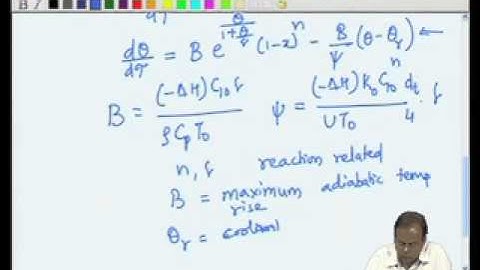 dθ/dτ = B e^(θ/(1+θ/γ)) (1-x)^n - B/ψ (θ-θ_r) ←
B = (-ΔH) C_10 γ / ρ C_p T_0   ψ = (-ΔH) K_0 C_T0^n d_t / U T_0 4 . γ
n, γ reaction related
B = maximum adiabatic temp
rise
θ_r = coolant